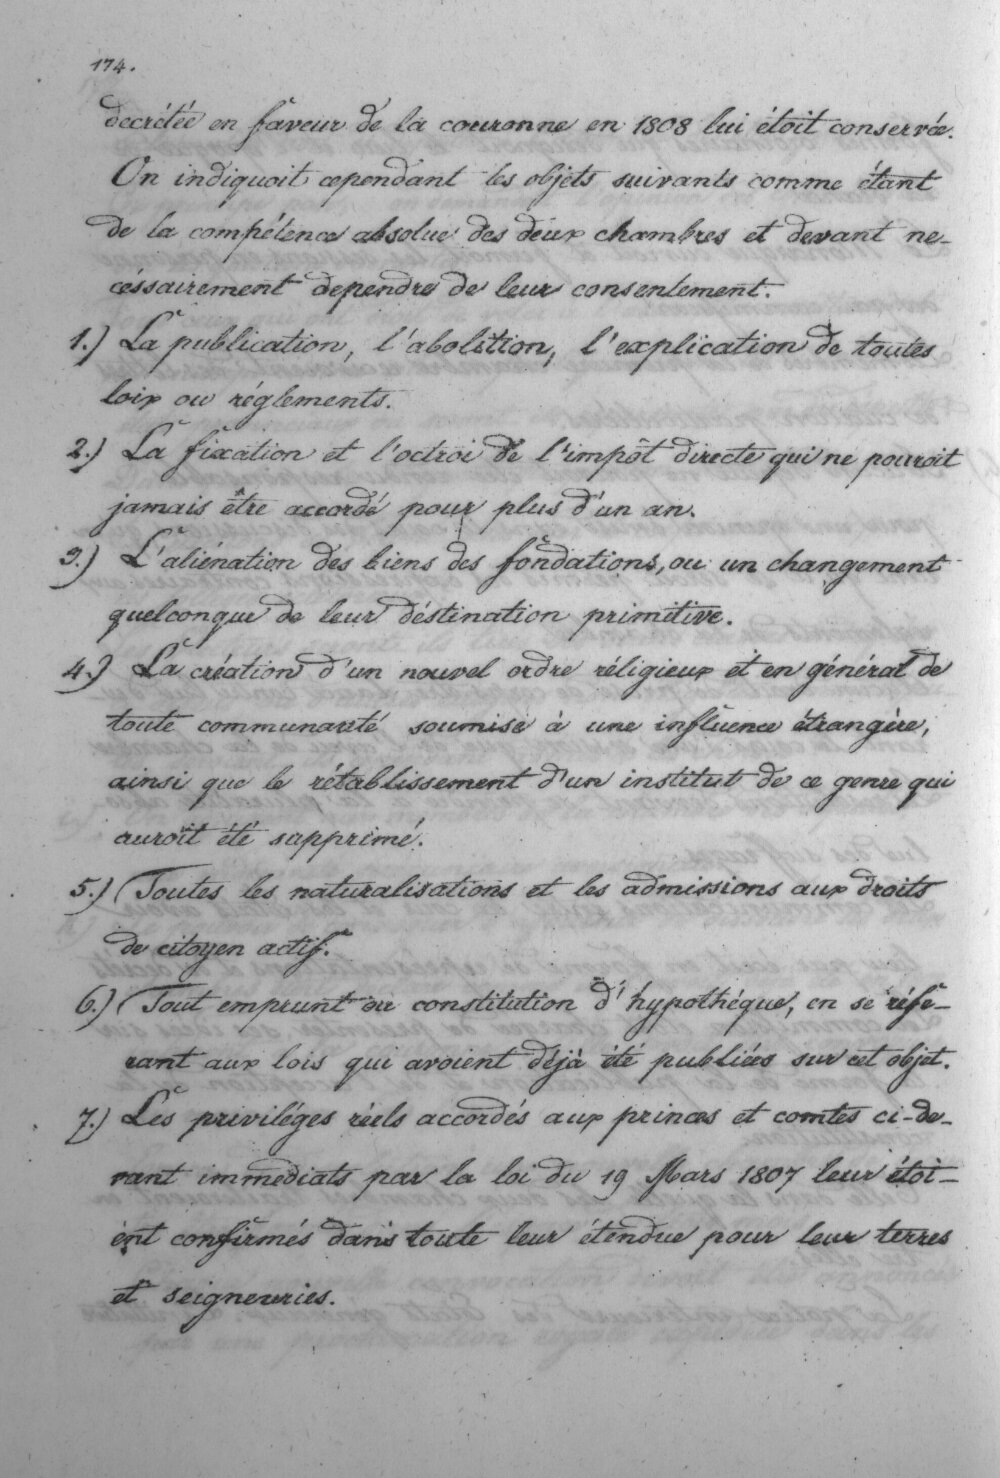 174.
decrétée en faveur de la couronne en 1808 lui étoit conservée.
On indiquoit cependant les objets suivants comme étant
de la compétence absolue des deux chambres et devant ne-
céssairement dependre de leur consentement.
1.) La publication, l'abolition, l'explication de toutes
loix ou réglements.
2.) La fixation et l'octroi de l'impôt directe qui ne pourroit
jamais être accordé pour plus d'un an.
3.) L'aliénation des biens des fondations, ou un changement
quelconque de leur déstination primitive.
4.) La création d'un nouvel ordre réligieux et en général de
toute communauté soumise à une influence étrangère,
ainsi que le rétablissement d'un institut de ce genre qui
auroit été supprimé.
5.) Toutes les naturalisations et les admissions aux droits
de citoyen actif.
6.) Tout emprunt ou constitution d'hypothéque, en se réfe-
rant aux lois qui avoient déjà été publiées sur cet objet.
7.) Les priviléges réels accordés aux princes et comtes ci-de-
vant immediats par la loi du 19 Mars 1807 leur étoi-
ent confirmés dans toute leur étendue pour leur terres
et seigneuries.